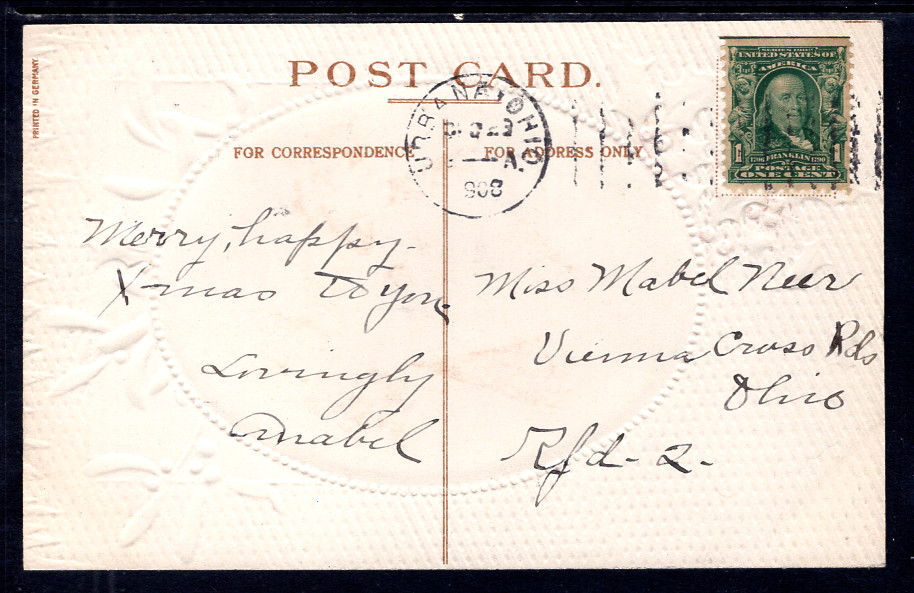 PRINTED IN GERMANY.
POST CARD.
URBANA, OHIO
A.
1908
SERIES 1902
UNITED STATES OF
AMERICA
1 1706 FRANKLIN 1790 1
POSTAGE
ONE CENT
FOR CORRESPONDENCE
FOR ADDRESS ONLY
Merry, happy-
X-mas to you
Lovingly
Mabel
Miss Mabel Neer
Vienna Cross Rds
Ohio
Rfd- 2-